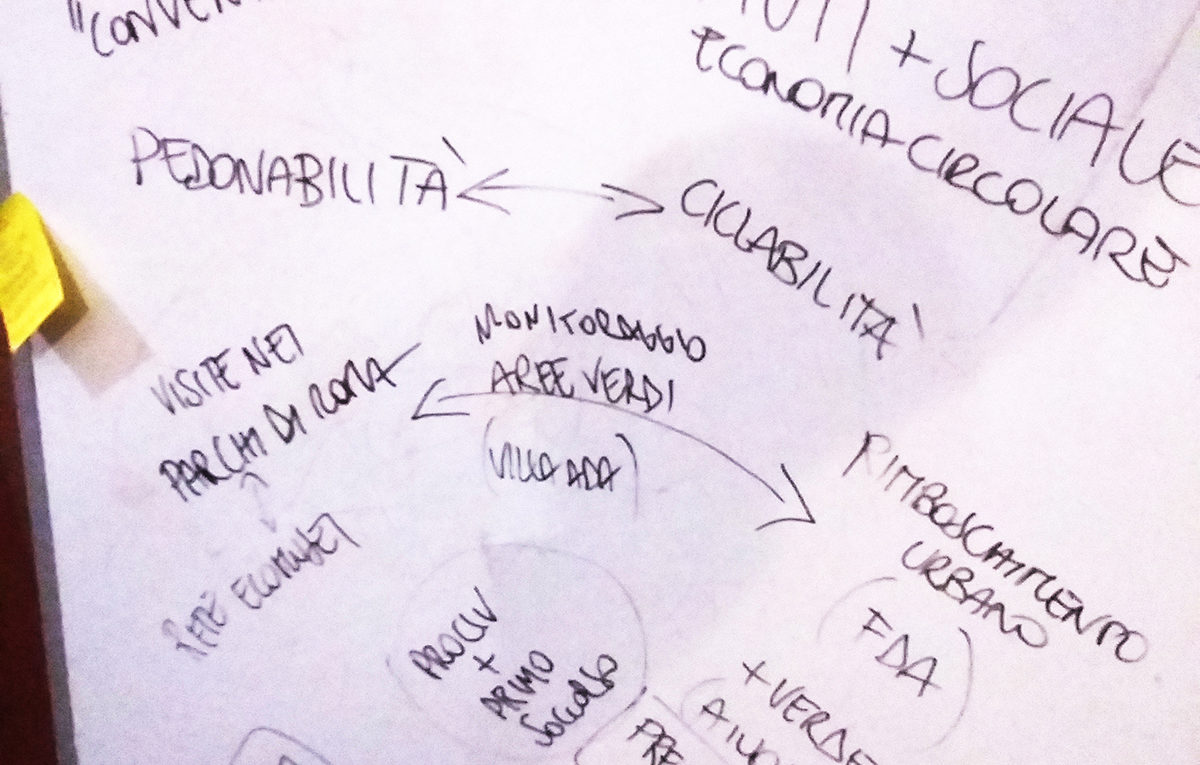 + SOCIALE
ECONOMIA CIRCOLARE
PEDONABILITÀ
CICLABILITÀ
MONITORAGGIO
AREE VERDI
(VILLA ADA)
VISITE NEI
PARCHI DI ROMA
RETE ECOMUSEI
RIMBOSCHIMENTO
URBANO
FDA
PROCIV
+
PRIMO
SOCCORSO
+ VERDE